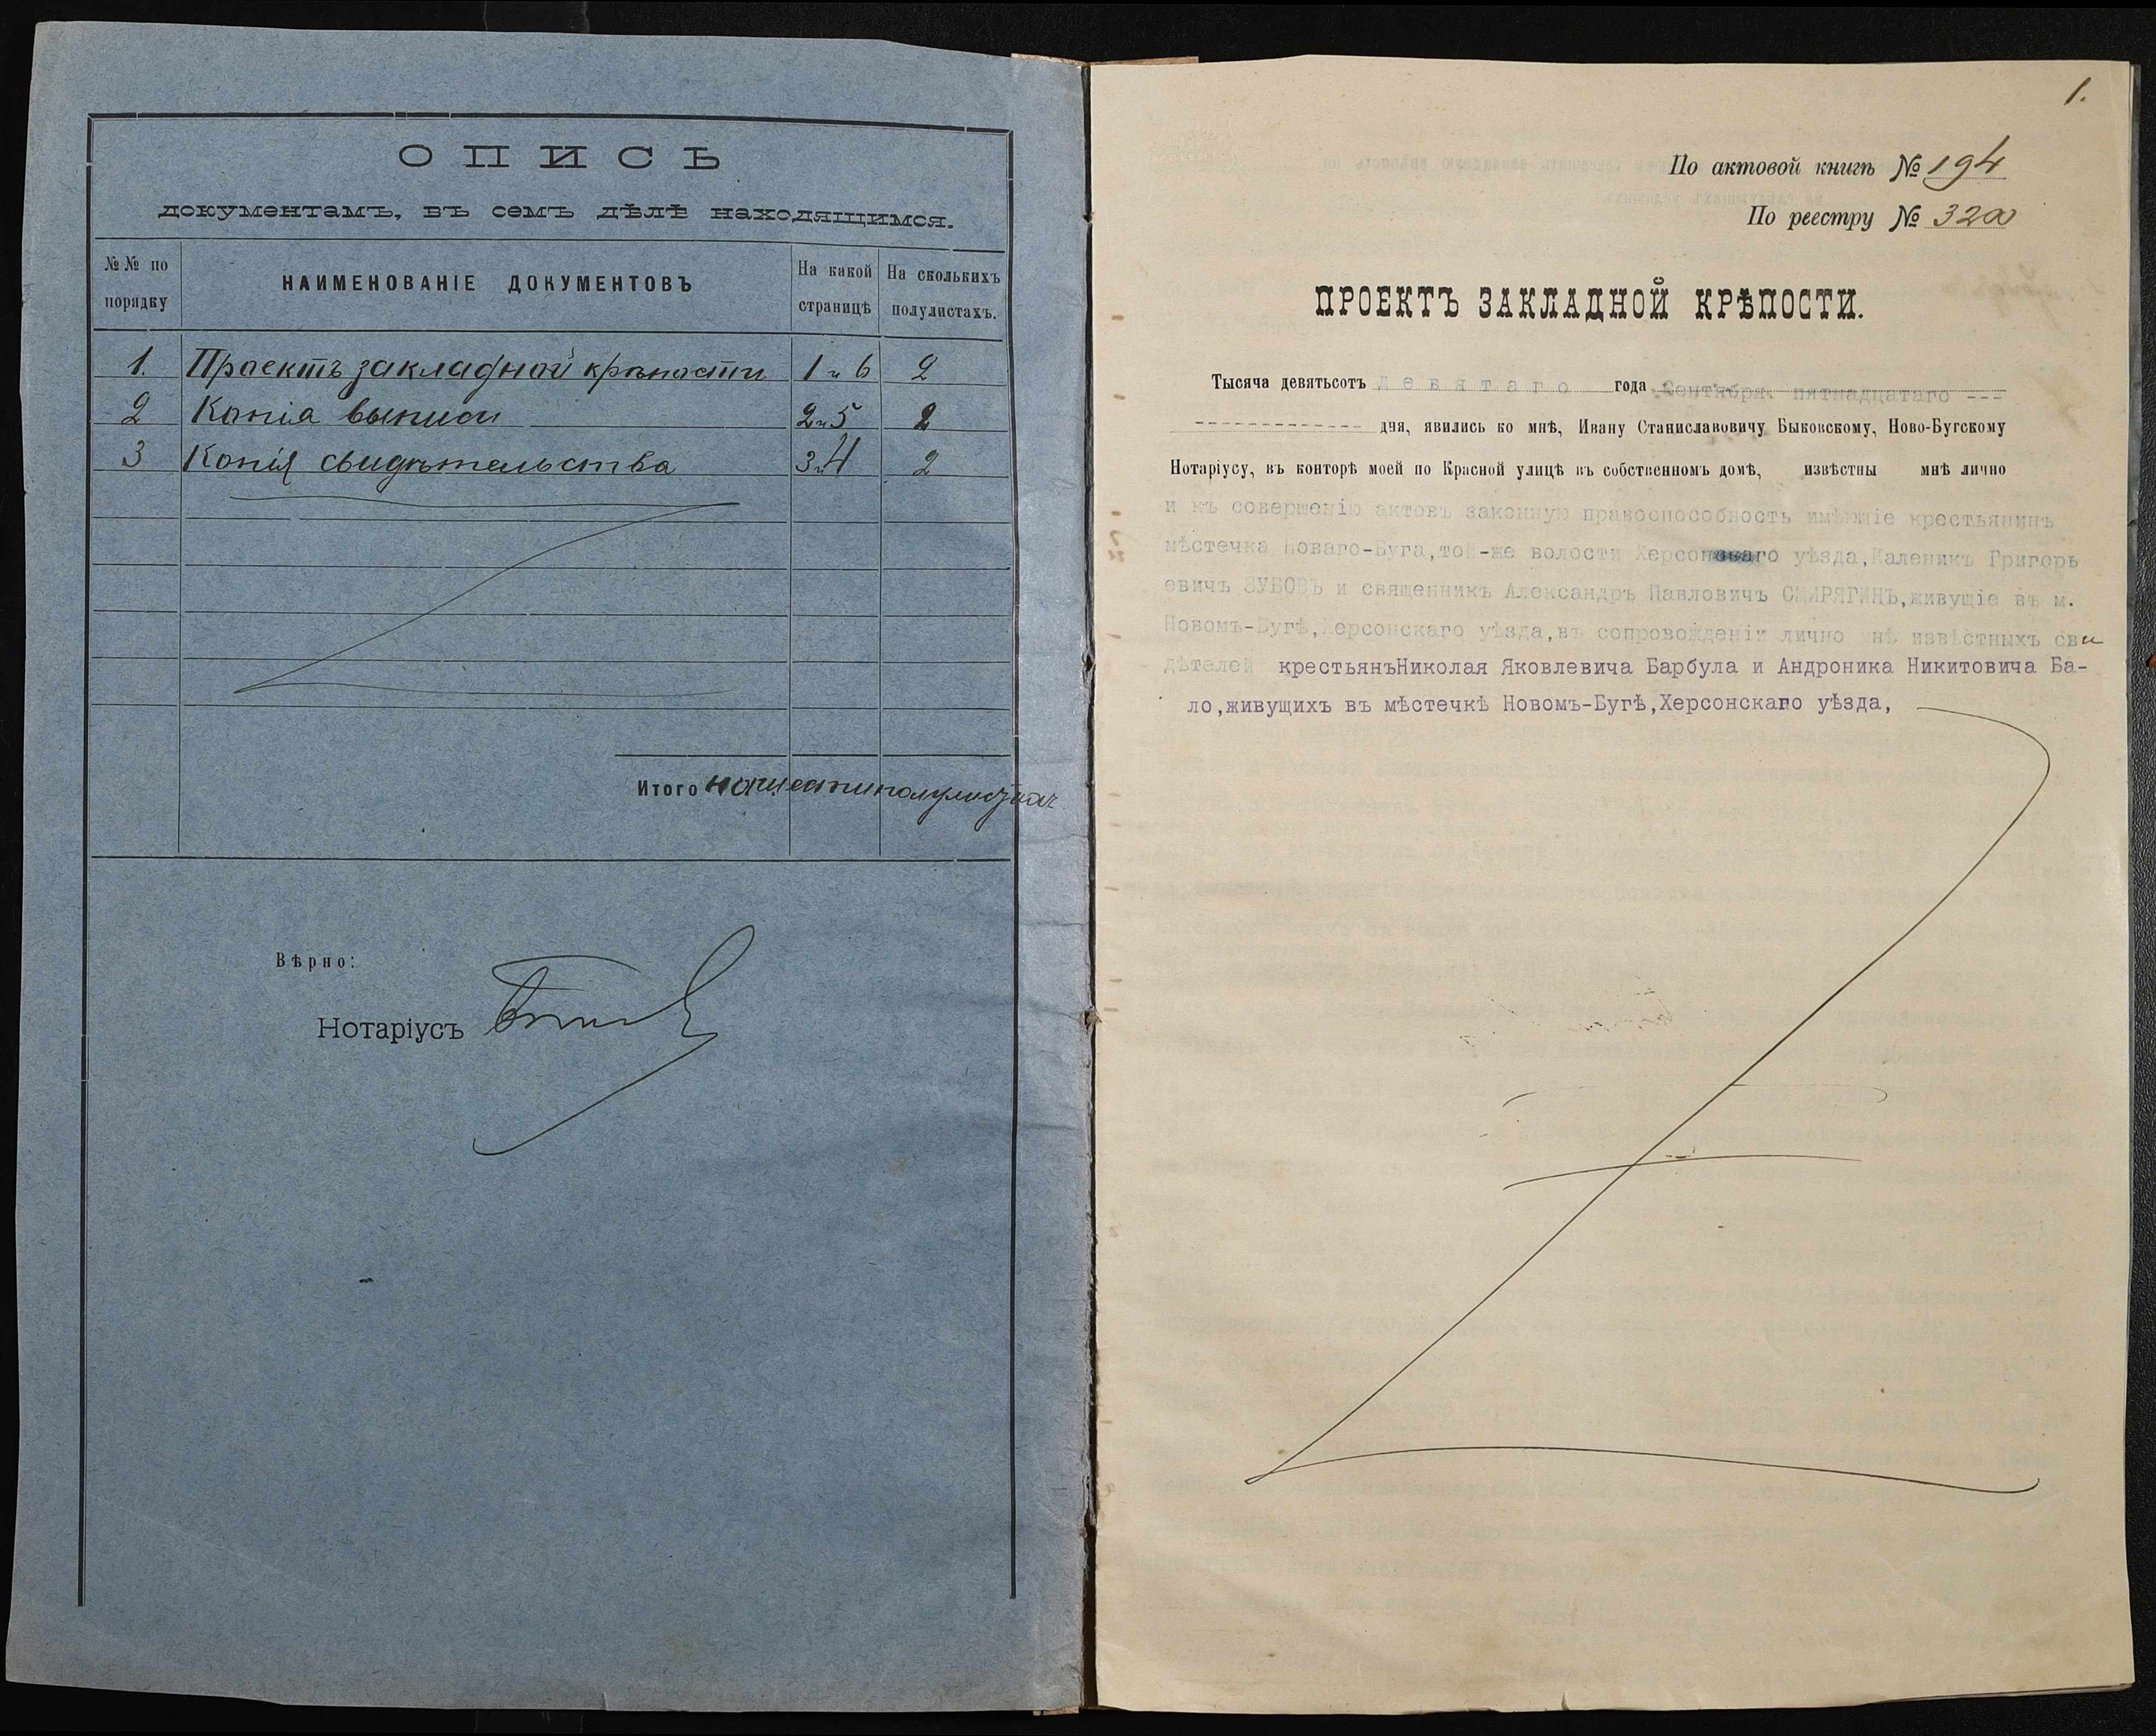 ОПИСЬ
документамъ, въ семъ дѣлѣ находящимся.
№№ по порядку
НАИМЕНОВАНІЕ ДОКУМЕНТОВЪ
На какой страницѣ
На сколькихъ полулистахъ.
1. Проектъ закладной крѣпости 1 и 6 2
2 Копія выписи 2 и 5 2
3 Копія свидѣтельства 3 и 4 2
Итого на шести полулистахъ
Вѣрно:
Нотаріусъ
1.
По актовой книгѣ № 194
По реестру № 3200
ПРОЕКТЪ ЗАКЛАДНОЙ КРѢПОСТИ.
Тысяча девятьсотъ девятаго года Сентября пятнадцатаго ---
------------- дня, явились ко мнѣ, Ивану Станиславовичу Быковскому, Ново-Бугскому
Нотаріусу, въ конторѣ моей по Красной улицѣ въ собственномъ домѣ, извѣстны мнѣ лично
и къ совершенію актовъ законную правоспособность имѣющіе крестьянинъ
мѣстечка Новаго-Буга,той-же волости Херсонскаго уѣзда,Каленикъ Григорь
евичъ ЗУБОВЪ и священникъ Александръ Павловичъ СМИРЯГИНЪ,живущіе въ м.
Новомъ-Бугѣ,Херсонскаго уѣзда,въ сопровожденіи лично мнѣ извѣстныхъ сви
дѣтелей крестьянъНиколая Яковлевича Барбула и Андроника Никитовича Ба-
ло,живущихъ въ мѣстечкѣ Новомъ-Бугѣ,Херсонскаго уѣзда,